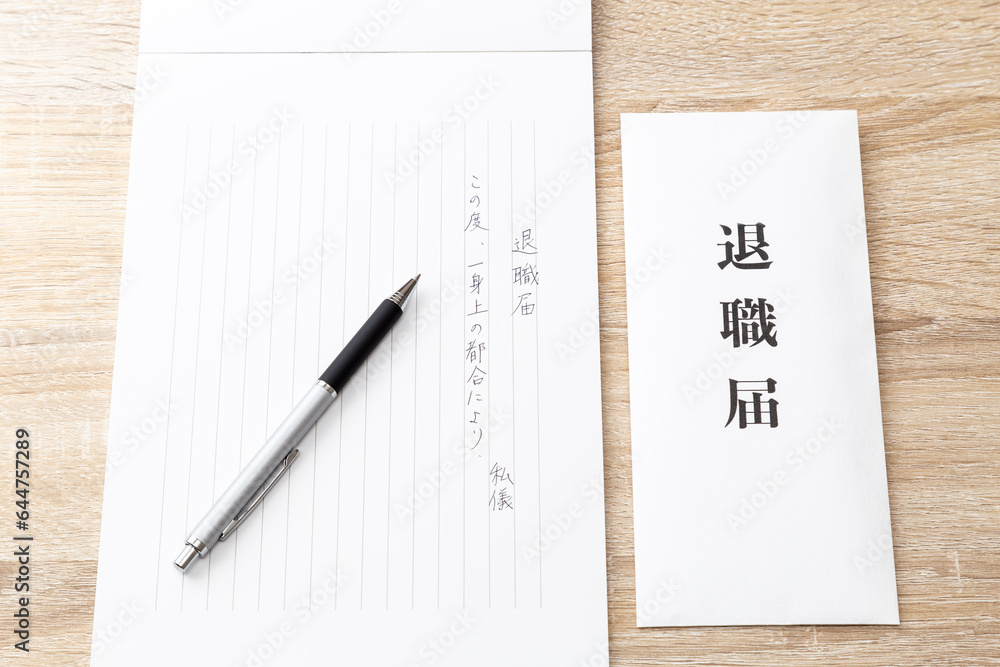 退職届
私儀
この度、一身上の都合により、
退職届
Adobe Stock | #644757289